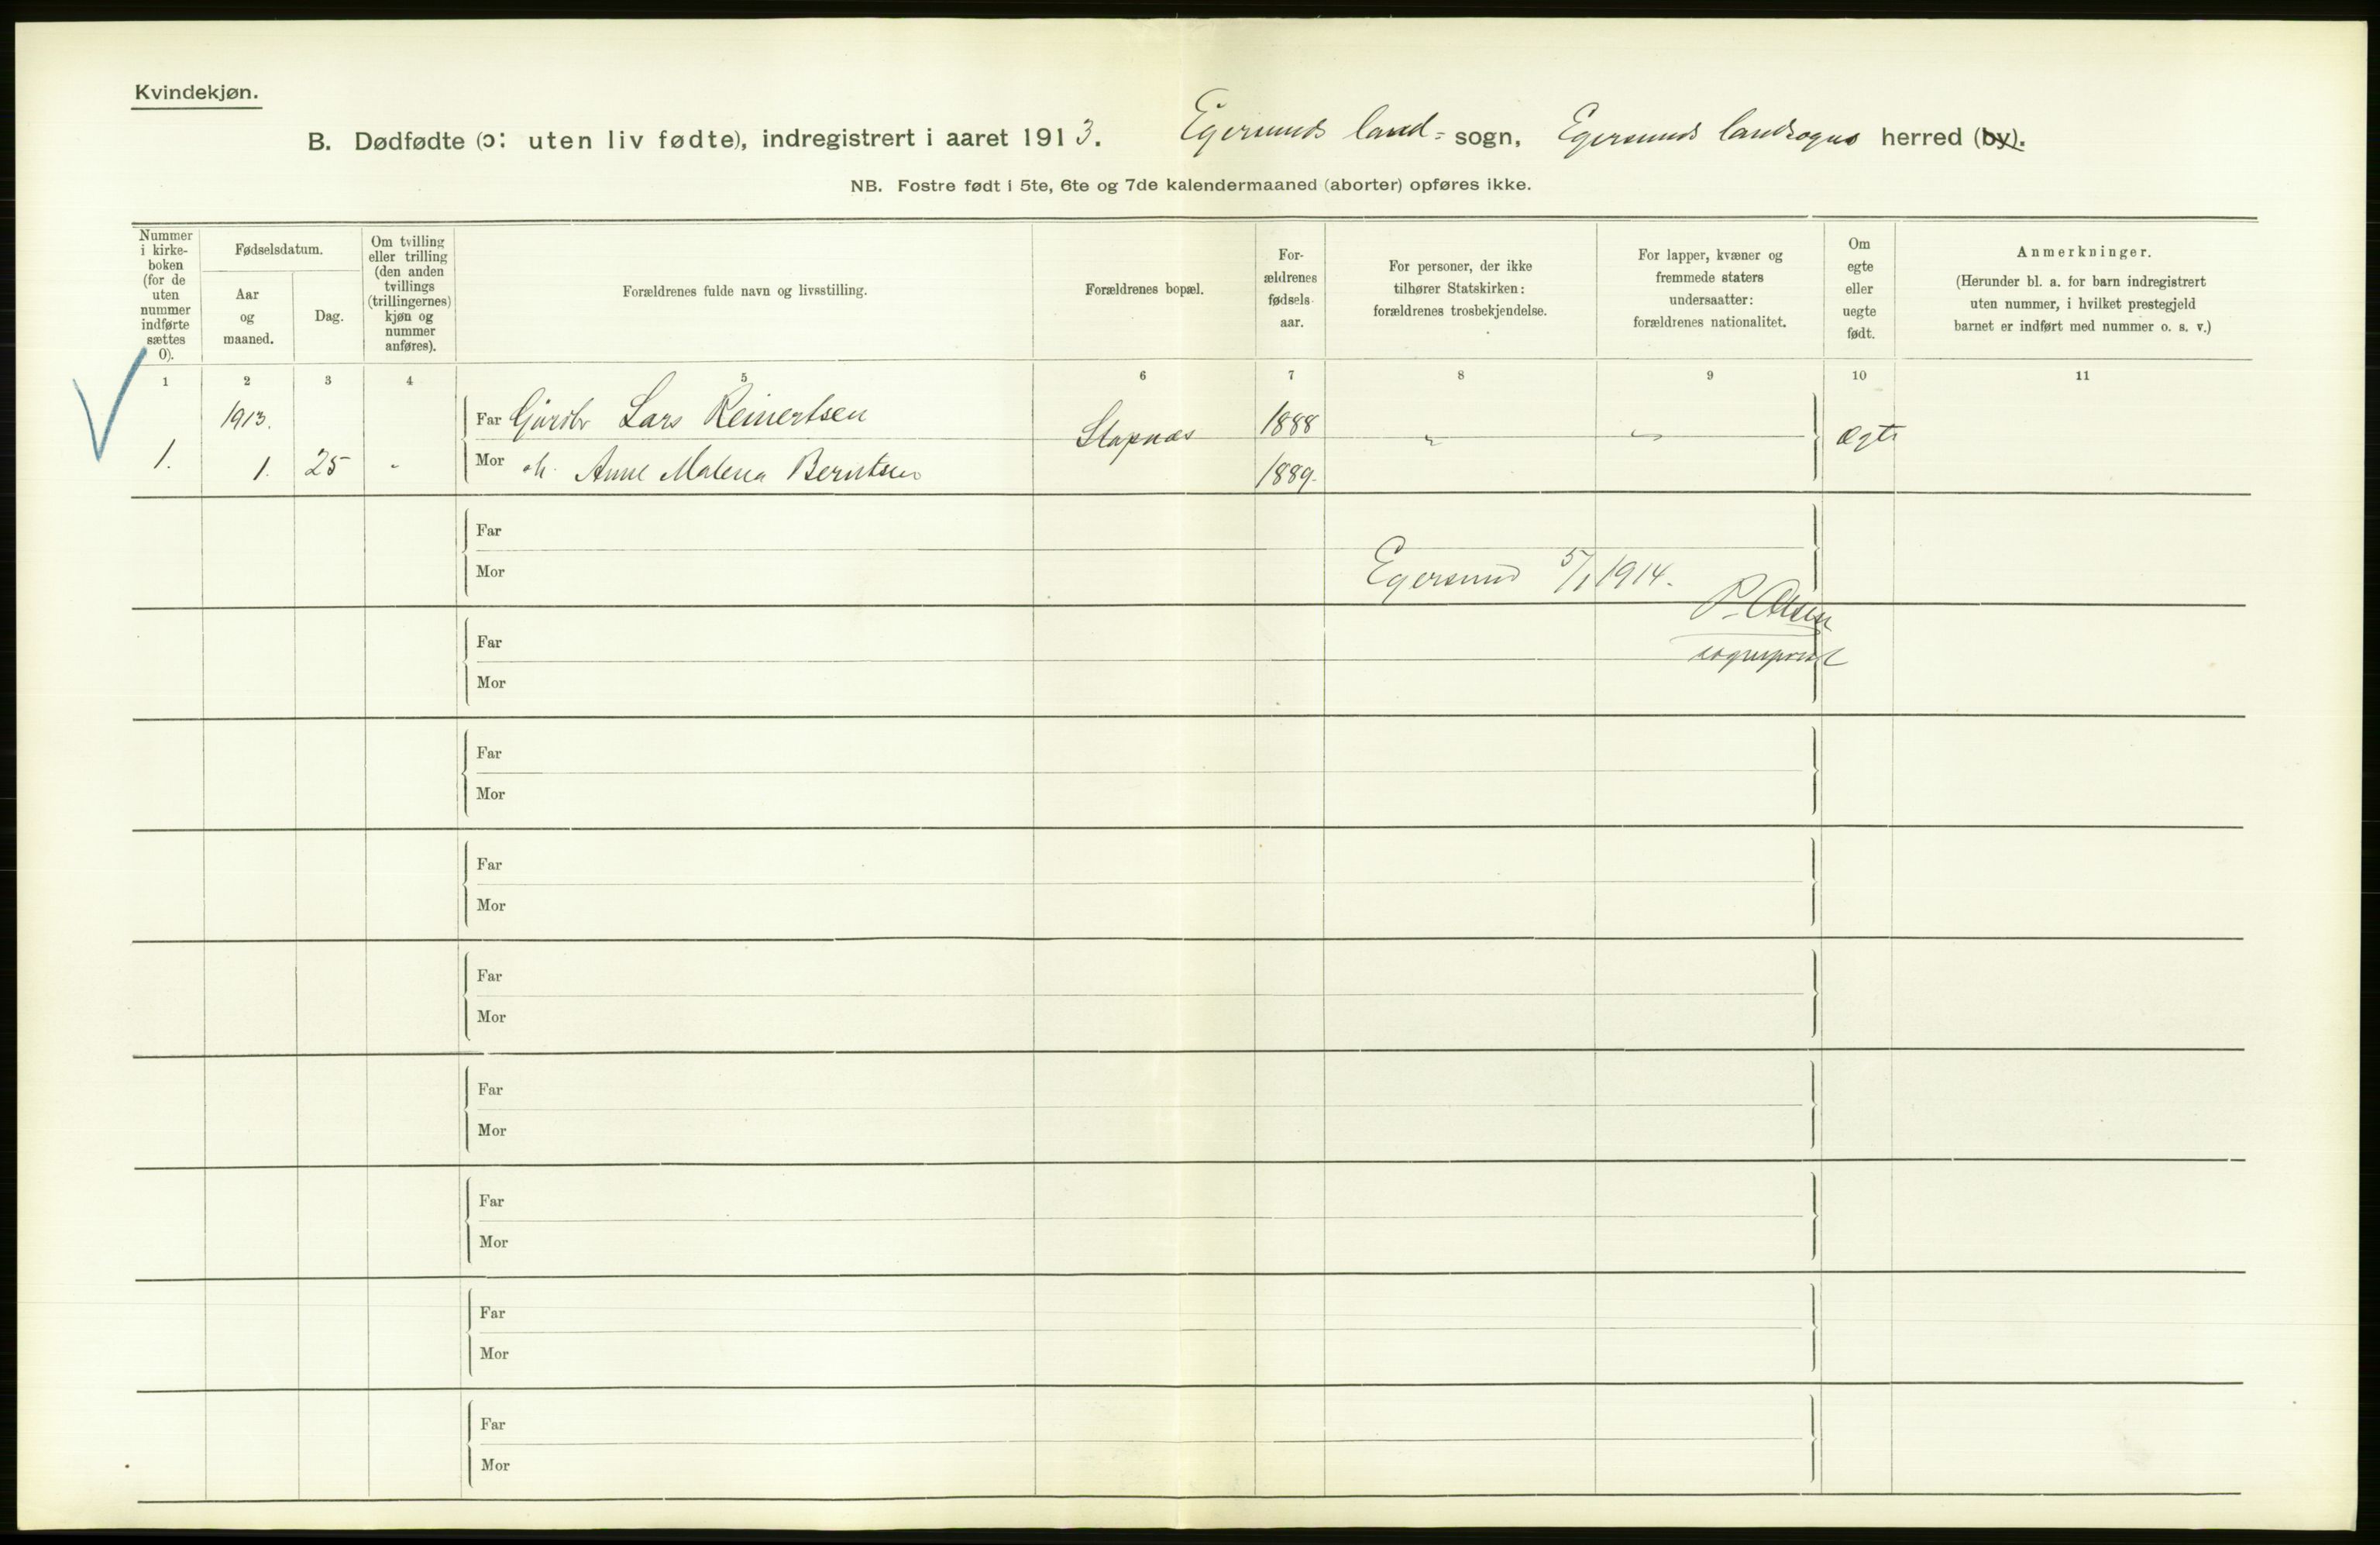 Kvindekjøn.
B. Dødfødte (ɔ: uten liv fødte), indregistrert i aaret 1913. Egersunds land= sogn, Egersunds landsogns herred (by).
NB. Fostre født i 5te, 6te og 7de kalendermaaned (aborter) opføres ikke.
Nummer i kirke-boken (for de uten nummer indførte sættes 0).
Fødselsdatum.
Aar og maaned.
Dag.
Om tvilling eller trilling (den anden tvillings (trillingernes) kjøn og nummer anføres).
Forældrenes fulde navn og livsstilling.
Forældrenes bopæl.
For-ældrenes fødsels aar.
For personer, der ikke tilhører Statskirken: forældrenes trosbekjendelse.
For lapper, kvæner og fremmede staters undersaatter: forældrenes nationalitet.
Om egte eller uegte født.
Anmerkninger.
(Herunder bl. a. for barn indregistrert uten nummer, i hvilket prestegjeld barnet er indført med nummer o. s. v.)
1 2 3 4 5 6 7 8 9 10 11
1913. Far Gårdbr Lars Reinertsen Stapnæs 1888 " " Ægte
1. 1. 25 " Mor Anne Malena Berntsen 1889.
Far
Mor
Egersund 5/1 1914.
P. Olsen
sogneprest
Far
Mor
Far
Mor
Far
Mor
Far
Mor
Far
Mor
Far
Mor
Far
Mor
Far
Mor